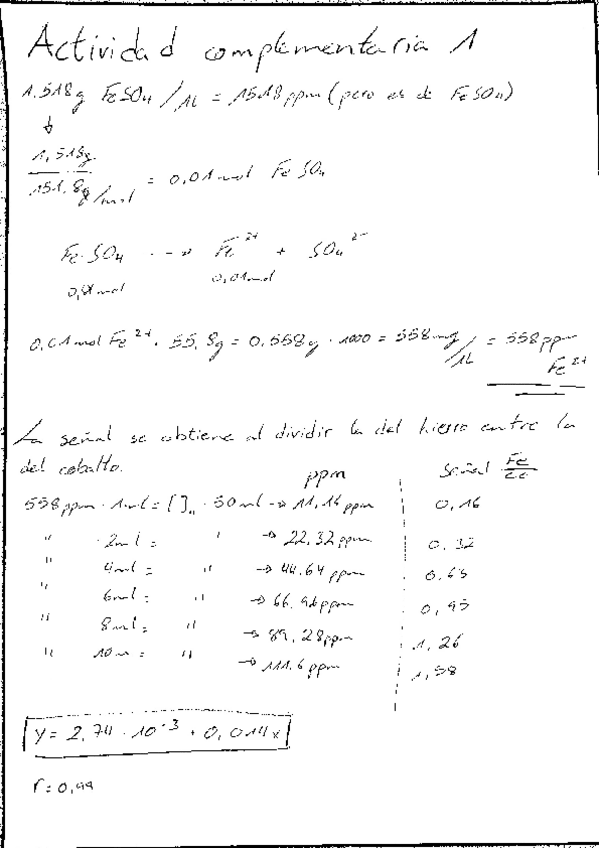 Actividad complementaria 1
1.518g FeSO4 / 1L = 1518 ppm (pero es de FeSO4)
↓
1,518g
151,8g/mol = 0,01 mol FeSO4
FeSO4 --→ Fe2+ + SO4 2-
0,01mol 0,01mol
0,01 mol Fe2+ · 55,8g = 0,558g · 1000 = 558mg/1L = 558ppm
Fe2+
La señal se obtiene al dividir la del hierro entre la
del cobalto.
ppm Señal Fe/Co
558ppm · 1ml = [ ]" · 50ml → 11,16 ppm 0,16
" · 2ml = " → 22,32 ppm 0,32
" 4ml = " → 44,64 ppm 0,65
" 6ml = " → 66,96ppm 0,95
" 8ml = " → 89,28ppm 1,26
" 10m = " → 111,6 ppm 1,58
y = 2,74 · 10-3 + 0,014x
r = 0,99